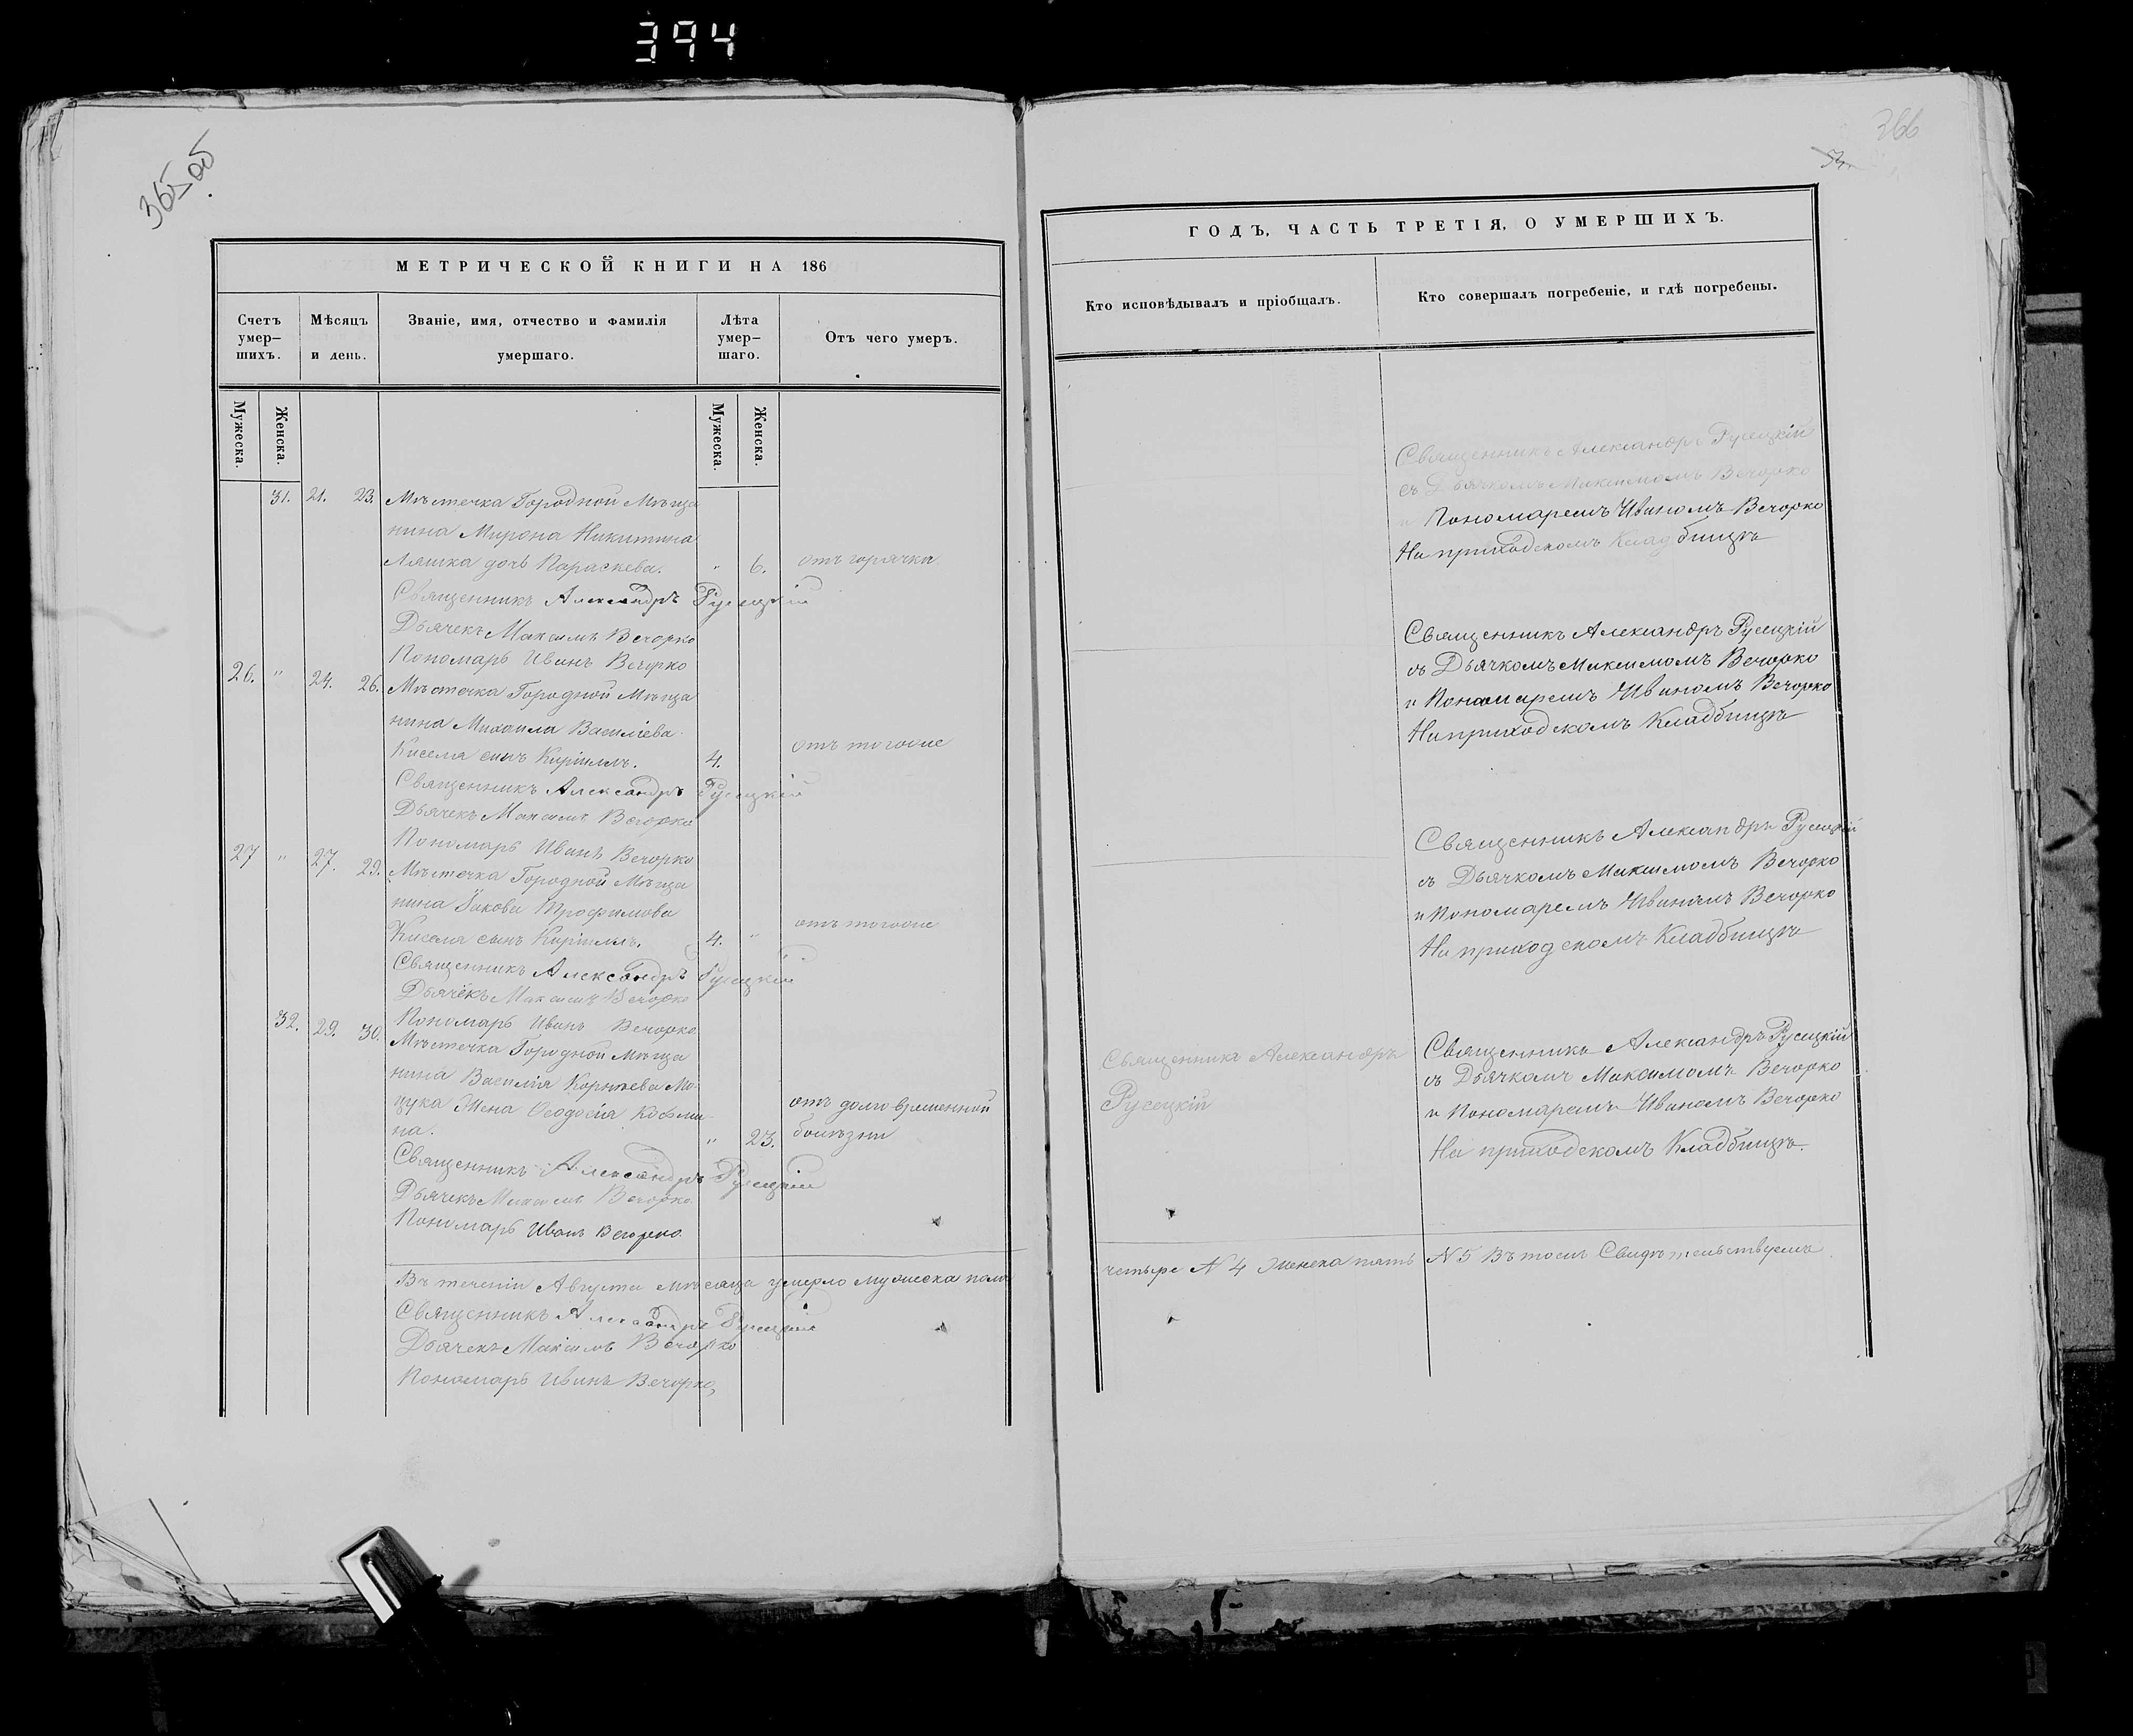 394
365 об
МЕТРИЧЕСКОЙ КНИГИ НА 186
Счетъ умер-шихъ.
Мѣсяцъ и день.
Званіе, имя, отчество и фамилія умершаго.
Лѣта умер-шаго.
Отъ чего умеръ.
Мужеска.
Женска.
Мужеска.
Женска.
31. 21. 23. Мѣстечка Городной Мѣща
нина Мирона Никитина
Ляшка дочь Параскева. " 6. отъ горячки
Священникъ Александръ Русецкій
Дьячекъ Максимъ Вечорко
Пономарь Иванъ Вечорко
26. " 24. 26. Мѣстечка Городной Мѣща
нина Михаила Василіева
Киселя сынъ Кириллъ. 4. отъ тогоже
Священникъ Александръ Русецкій
Дьячекъ Максимъ Вечорко
Пономарь Иванъ Вечорко
27 " 27. 29. Мѣстечка Городной Мѣща
нина Іакова Трофимова
Киселя сынъ Кириллъ. 4. " отъ тогоже
Священникъ Александръ Русецкій
Дьячекъ Максимъ Вечорко
Пономарь Иванъ Вечорко
32. 29. 30. Мѣстечка Городной Мѣща
нина Василія Корнѣева
Жена Ѳеодосія отъ долговременной
на. " 23. болѣзни
Священникъ Александръ Русецкій
Дьячекъ Максимъ Вечорко
Пономарь Иванъ Вечорко
Въ теченіи Августа мѣсяца умерло мужеска пола
Священникъ Александръ Русецкій
Дьячекъ Максимъ Вечорко
Пономарь Иванъ Вечорко
366
ГОДЪ, ЧАСТЬ ТРЕТІЯ, О УМЕРШИХЪ.
Кто исповѣдывалъ и пріобщалъ.
Кто совершалъ погребеніе, и гдѣ погребены.
Священникъ Александръ Русецкій
съ Дьячкомъ Максимомъ Вечорко
и Пономаремъ Иваномъ Вечорко
На приходскомъ Кладбищѣ
Священникъ Александръ Русецкій
съ Дьячкомъ Максимомъ Вечорко
и Пономаремъ Иваномъ Вечорко
На приходскомъ Кладбищѣ
Священникъ Александръ Русецкій
съ Дьячкомъ Максимомъ Вечорко
и Пономаремъ Иваномъ Вечорко
На приходскомъ Кладбищѣ
Священникъ Александръ
Русецкій
Священникъ Александръ Русецкій
съ Дьячкомъ Максимомъ Вечорко
и Пономаремъ Иваномъ Вечорко
На приходскомъ Кладбищѣ.
четыре N 4 женска пять N 5 Въ томъ Свидѣтельствуемъ